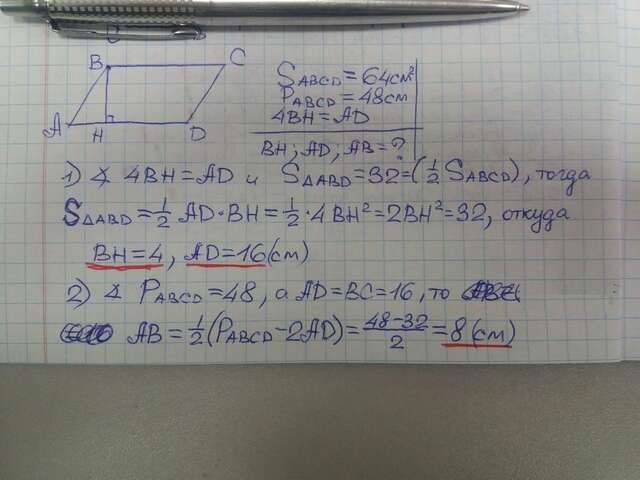 B C
A H D
S ABCD = 64см²
P ABCD = 48см
4BH = AD
BH; AD; AB = ?
1) ∡ 4BH = AD и S△ABD = 32 = (1/2 S ABCD), тогда
S△ABD = 1/2 AD · BH = 1/2 · 4BH² = 2BH² = 32, откуда
BH = 4, AD = 16 (см)
2) ∡ P ABCD = 48, а AD = BC = 16, то
AB = 1/2 (P ABCD − 2AD) = (48 − 32)/2 = 8 (см)